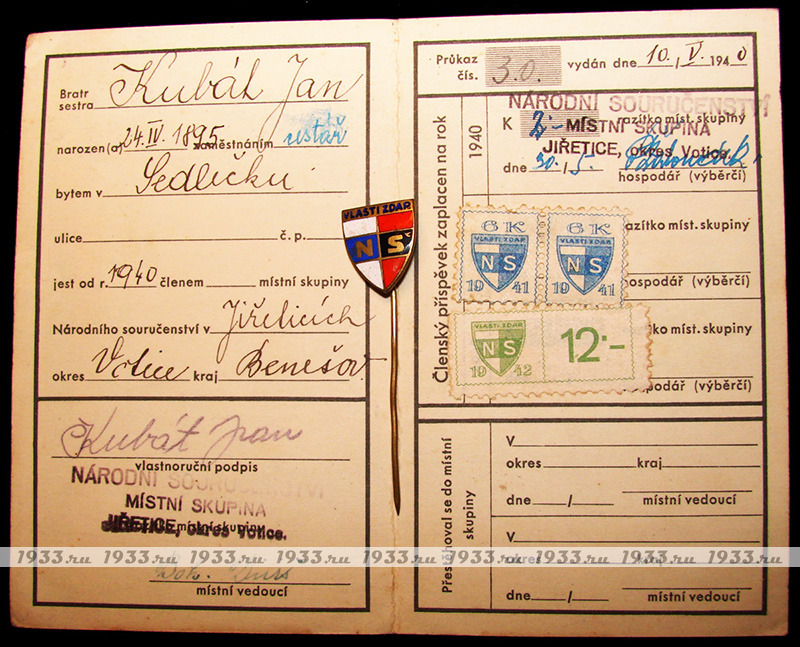 Bratr
sestra Kubát Jan
narozen(a) 24.IV. 1895 zaměstnáním
bytem v Sedlečku
ulice č. p.
jest od r. 1940 členem místní skupiny
Národního souručenství v Jiřeticích
okres Votice kraj Benešov
Kubát Jan
vlastnoruční podpis
NÁRODNÍ SOURUČENSTVÍ
MÍSTNÍ SKUPINA
JIŘETICE, okres Votice.
místní skupiny
místní vedoucí
VLASTI ZDAR
NS
Průkaz
čís. 30. vydán dne 10./V. 1940
Členský příspěvek zaplacen na rok
1940
NÁRODNÍ SOURUČENSTVÍ
K 2·- razítko míst. skupiny
MÍSTNÍ SKUPINA
JIŘETICE, okres Votice.
dne 30./5.
hospodář (výběrčí)
6 K 6 K
VLASTI ZDAR VLASTI ZDAR
NS NS
19 41 19 41
razítko míst. skupiny
hospodář (výběrčí)
VLASTI ZDAR
NS 12·-
19 42
razítko míst. skupiny
hospodář (výběrčí)
Přestěhoval se do místní
skupiny
V
okres kraj
dne / místní vedoucí
V
okres kraj
dne / místní vedoucí
1933.ru 1933.ru 1933.ru 1933.ru 1933.ru 1933.ru 1933.ru 1933.ru